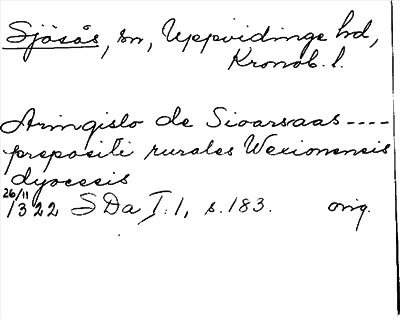 Sjösås, sn, Uppvidinge hd,
Kronob. l.
Aringislo de Sioarsaas ----
prepositi rurales Wexionensis
dyocesis
26/11
1322 SDa I:1, s. 183. orig.